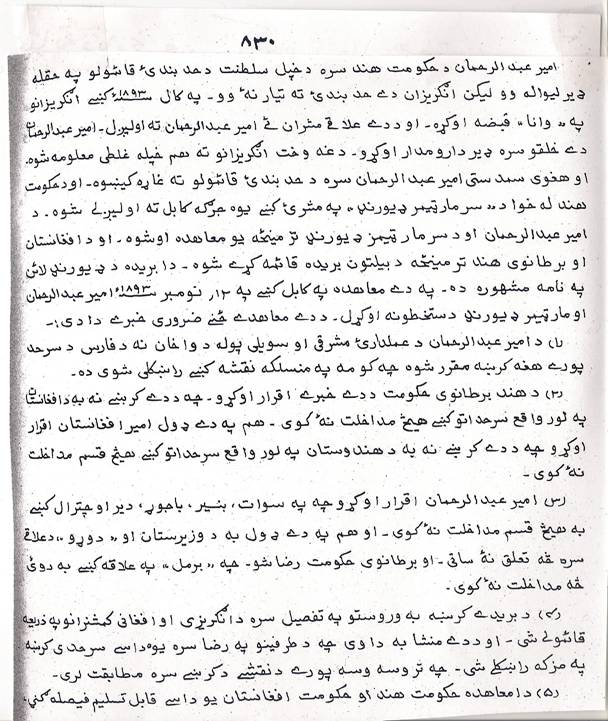 ۸۳۰
امیر عبدالرحمان د حکومت هند سره د خپل سلطنت د حد بندۍ قائمولو په حقله
ډیر لیواله وو لیکن انګریزان دے حد بندۍ ته تیار نۀ وو۔ په کال ۱۸۹۳ء کښے انګریزانو
په "وانا" قبضه اوکړه۔ او د دے علاقے مشران ئے امیر عبدالرحمان ته اولیږل۔ امیر عبدالرحمان
دے خلقو سره ډیر دارومدار اوکړو۔ دغه وخت انګریزانو ته هم خپله غلطی معلومه شوه۔
او هغوی سمدستی امیر عبدالرحمان سره د حد بندۍ قائمولو ته غاړه کیښوه۔ او د حکومت
هند له خوا د "سر مارټیمر ډیورنډ" په مشرۍ کښے یوه جرګه کابل ته اولیږلے شوه۔ د
امیر عبدالرحمان او د سر مارټیمر ډیورنډ ترمینځه یو معاهده اوشوه۔ او د افغانستان
او برطانوی هند ترمینځه د بیلتون بریده قائمه کړے شوه۔ دا بریده د ډیورنډ لائن
په نامه مشهوره ده۔ په دے معاهده په کابل کښے په ۱۲ نومبر ۱۸۹۳ء امیر عبدالرحمان
او مارټیمر ډیورنډ دستخطونه اوکړل۔ د دے معاهدے ځنے ضروری خبرے دا دی:-
(۱) د امیر عبدالرحمان د عملدارۍ مشرقی او سویلی پوله د واخان نه د فارس د سرحد
پورے هغه کرښه مقرر شوه چه کومه په منسلکه نقشه کښے راښکلی شوی ده۔
(۲) د هند برطانوی حکومت د دے خبرے اقرار اوکړو۔ چه د دے کرښے نه به د افغانستان
په لور واقع سرحداتو کښے هیڅ مداخلت نۀ کوی۔ هم په دے ډول امیر افغانستان اقرار
اوکړو چه د دے کرښے نه به د هندوستان په لور واقع سرحداتو کښے هیڅ قسم مداخلت
نۀ کوی۔
(۳) امیر عبدالرحمان اقرار اوکړو چه په سوات، بنیر، باجوړ، دیر او چترال کښے
به هیڅ قسم مداخلت نۀ کوی۔ او هم په دے ډول به د وزیرستان او "دوړو" د علاقے
سره څه تعلق نۀ ساتی۔ او برطانوی حکومت رضا شو۔ چه "برمل" په علاقه کښے به دوئ
څه مداخلت نۀ کوی۔
(۴) د بریدے کرښه به وروستو په تفصیل سره د انګریزی او افغانی کمشنرانو په ذریعه
قائمولے شی۔ او د دے منشا به دا وی چه د طرفینو په رضا سره یوه داسے سرحدی کرښه
په مزکه راښکلے شی۔ چه تر وسه وسه پورے د نقشے د کرښے سره مطابقت لری۔
(۵) دا معاهده حکومت هند او حکومت افغانستان یو داسے قابل تسلیم فیصله ګڼی،